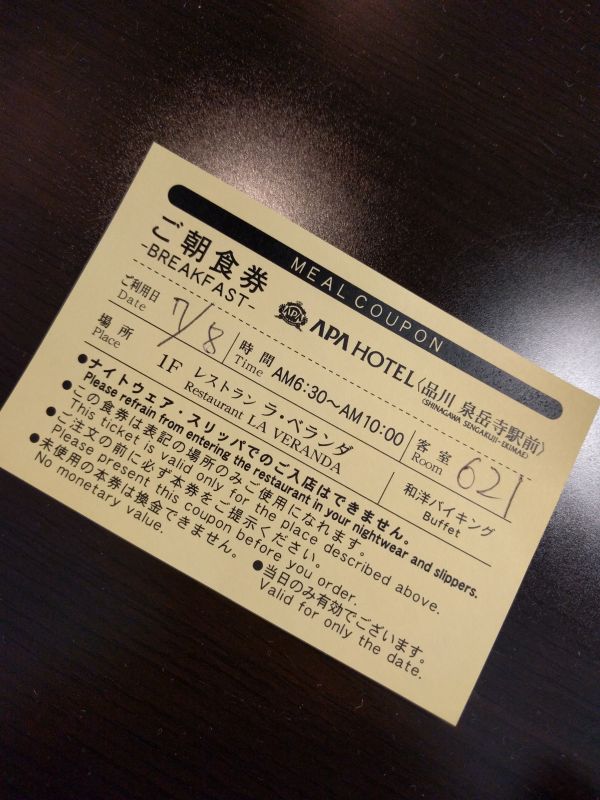 MEAL COUPON
ご朝食券
-BREAKFAST-
APA HOTEL〈品川 泉岳寺駅前〉
(SHINAGAWA SENGAKUJI-EKIMAE)
ご利用日 Date 7/8 時間 Time AM6:30～AM10:00 客室 Room 621
場所 Place 1F レストラン ラ・ベランダ Restaurant LA VERANDA 和洋バイキング Buffet
●ナイトウェア・スリッパでのご入店はできません。
Please refrain from entering the restaurant in your nightwear and slippers.
●この食券は表記の場所のみご使用になれます。
This ticket is valid only for the place described above.
●ご注文の前に必ず本券をご提示ください。
Please present this coupon before you order.
●未使用の本券は換金できません。
No monetary value.
●当日のみ有効でございます。
Valid for only the date.